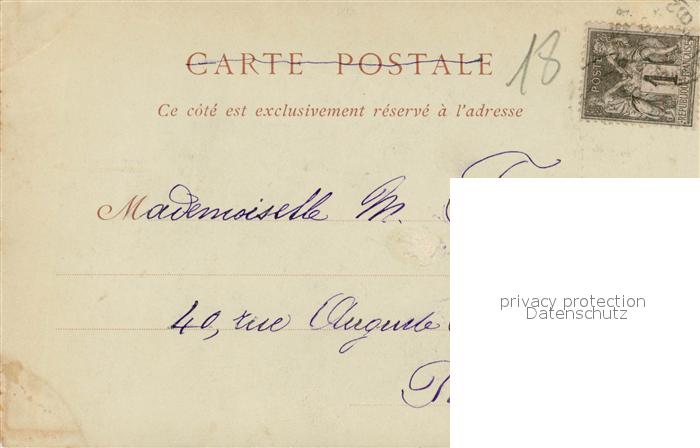 CARTE POSTALE
18
POSTES
1
RÉPUBLIQUE FRANÇAISE
Ce côté est exclusivement réservé à l'adresse
Mademoiselle M.
40, rue Auguste
privacy protection
Datenschutz